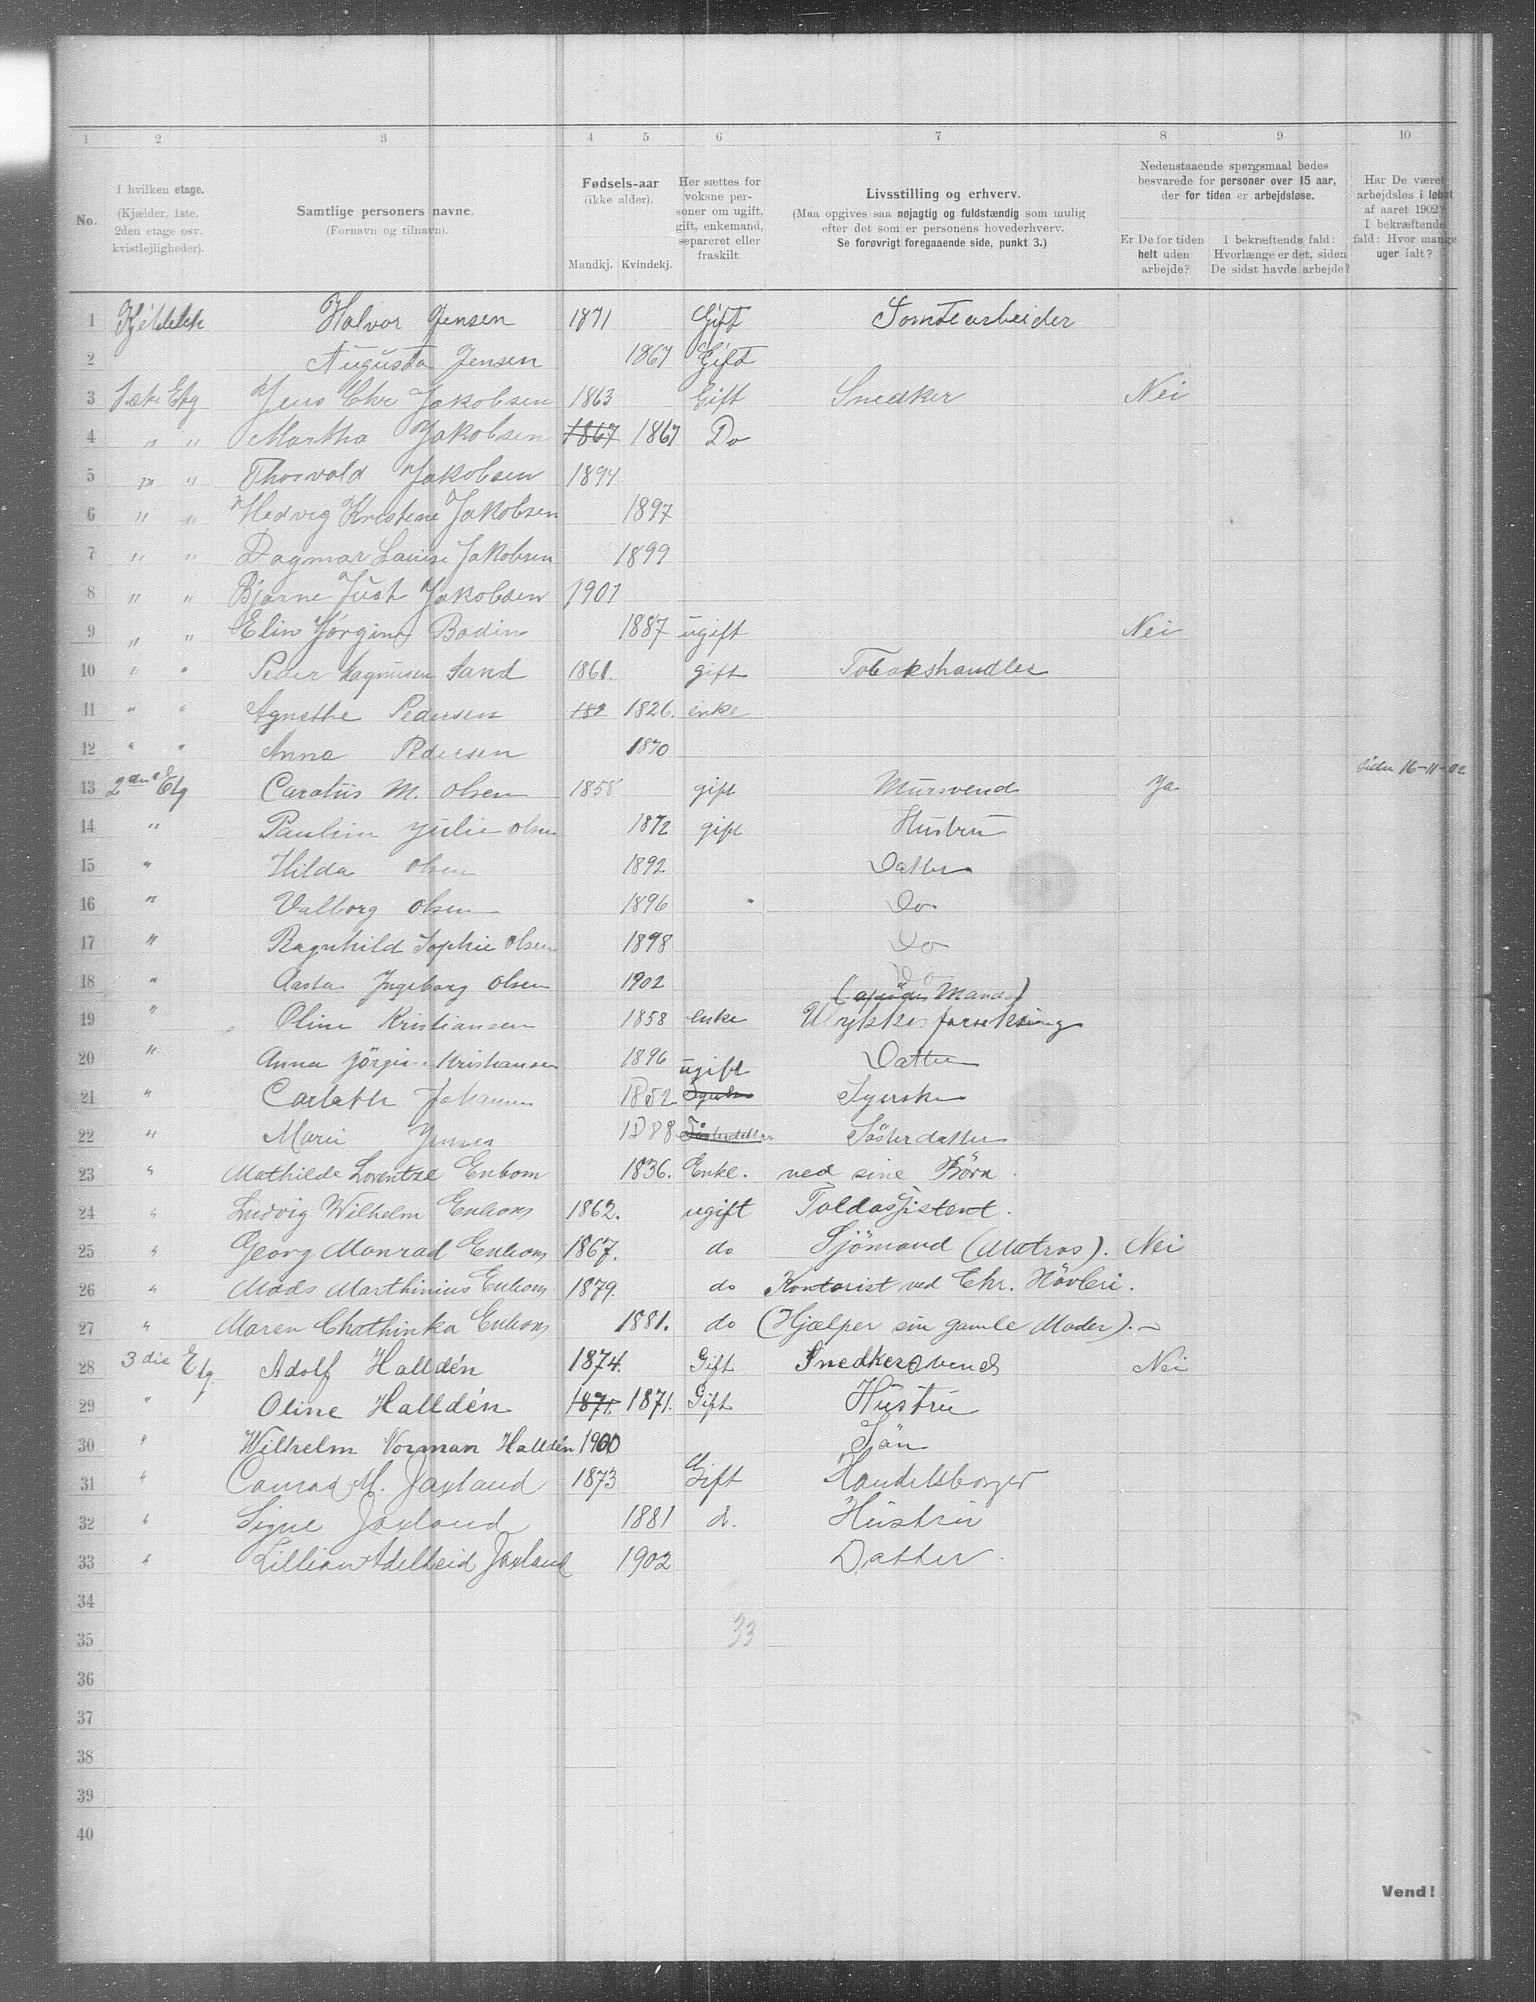 1 2 3 4 5 6 7 8 9 10
No.
I hvilken etage.
(Kjælder, 1ste,
2den etage osv.
kvistlejligheder).
Samtlige personers navne.
(Fornavn og tilnavn).
Fødsels-aar
(ikke alder).
Mandkj. Kvindekj.
Her sættes for
voksne per-
soner om ugift,
gift, enkemand,
separeret eller
fraskilt.
Livsstilling og erhverv.
(Maa opgives saa nøjagtig og fuldstændig som mulig
efter det som er personens hovederhverv.
Se forøvrigt foregaaende side, punkt 3.)
Nedenstaaende spørgsmaal bedes
besvarede for personer over 15 aar,
der for tiden er arbejdsløse.
Er De for tiden
helt uden
arbejde?
I bekræftende fald:
Hvorlænge er det, siden
De sidst havde arbejde?
Har De været
arbejdsløs i løbet
af aaret 1902?
I bekræftende
fald: Hvor mange
uger ialt?
1 Halvor Jensen 1871 Gift Tomtearbeider
2 Augusta Jensen 1867 Gift
3 1ste Etg Jens Chr Jakobsen 1863 Gift Snedker Nei
4 " " Martha Jakobsen 1867 1867 Do
5 " " Thorvald Jakobsen 1894
6 " " Hedvig Kristene Jakobsen 1897
7 " " Dagmar Louise Jakobsen 1899
8 " " Bjarne Just Jakobsen 1901
9 " " Elin Jørgine Bodin 1887 ugift Nei
10 " " Peder Magnusen Sand 1861. gift Tobakshandler
11 " " Agnethe Pedersen 182 1826. enke
12 " " Anna Pedersen 1870
13 2den Etg Caratius M. Olsen 1858 gift Mursvend Ja siden 16-11-02
14 " Paulin Julie Olsen 1872 gift Hustru
15 " Hilda Olsen 1892 Datter
16 " Valborg Olsen 1896 Do
17 " Ragnhild Sophie Olsen 1898 Do
18 " Aasta Ingeborg Olsen 1902 Do
(afdøde Mands)
19 " Oline Kristiansen 1858 enke Ulykkesforsikring
20 " Anna Jörgine Kristiansen 1896 Datter
21 " Johannesen 1852 ugift Syerske
22 " Marie Jensen 1888 Søsterdatter Søsterdatter
23 " Mathilde Lorentze Enbom 1836. Enke. ved sine Börn.
24 " Ludvig Wilhelm Enbom 1862. ugift Toldassistent.
25 " Georg Monrad Enbom 1867. do Sjömand (Matros). Nei
26 " Mads Marthinius Enbom 1879. do Kontorist ved Chr. Hövleri.
27 " Maren Chathinka Enbom 1881. do (Hjælper sin gamle Moder). –
28 3die Etg. Adolf Halldén 1874. Gift Snedkersvend Nei
29 " Oline Halldén 1871. 1871. Gift Hustru
30 " Wilhelm Norman Halldén 1900 Sön
31 " Conrad M. Jaxland 1873 Gift Handelsborger
32 " Signe Jaxland 1881 d. Hustru
33 " Lillian Adelheid Jaxland 1902 Datter.
34
35 33
36
37
38
39
40
Vend!